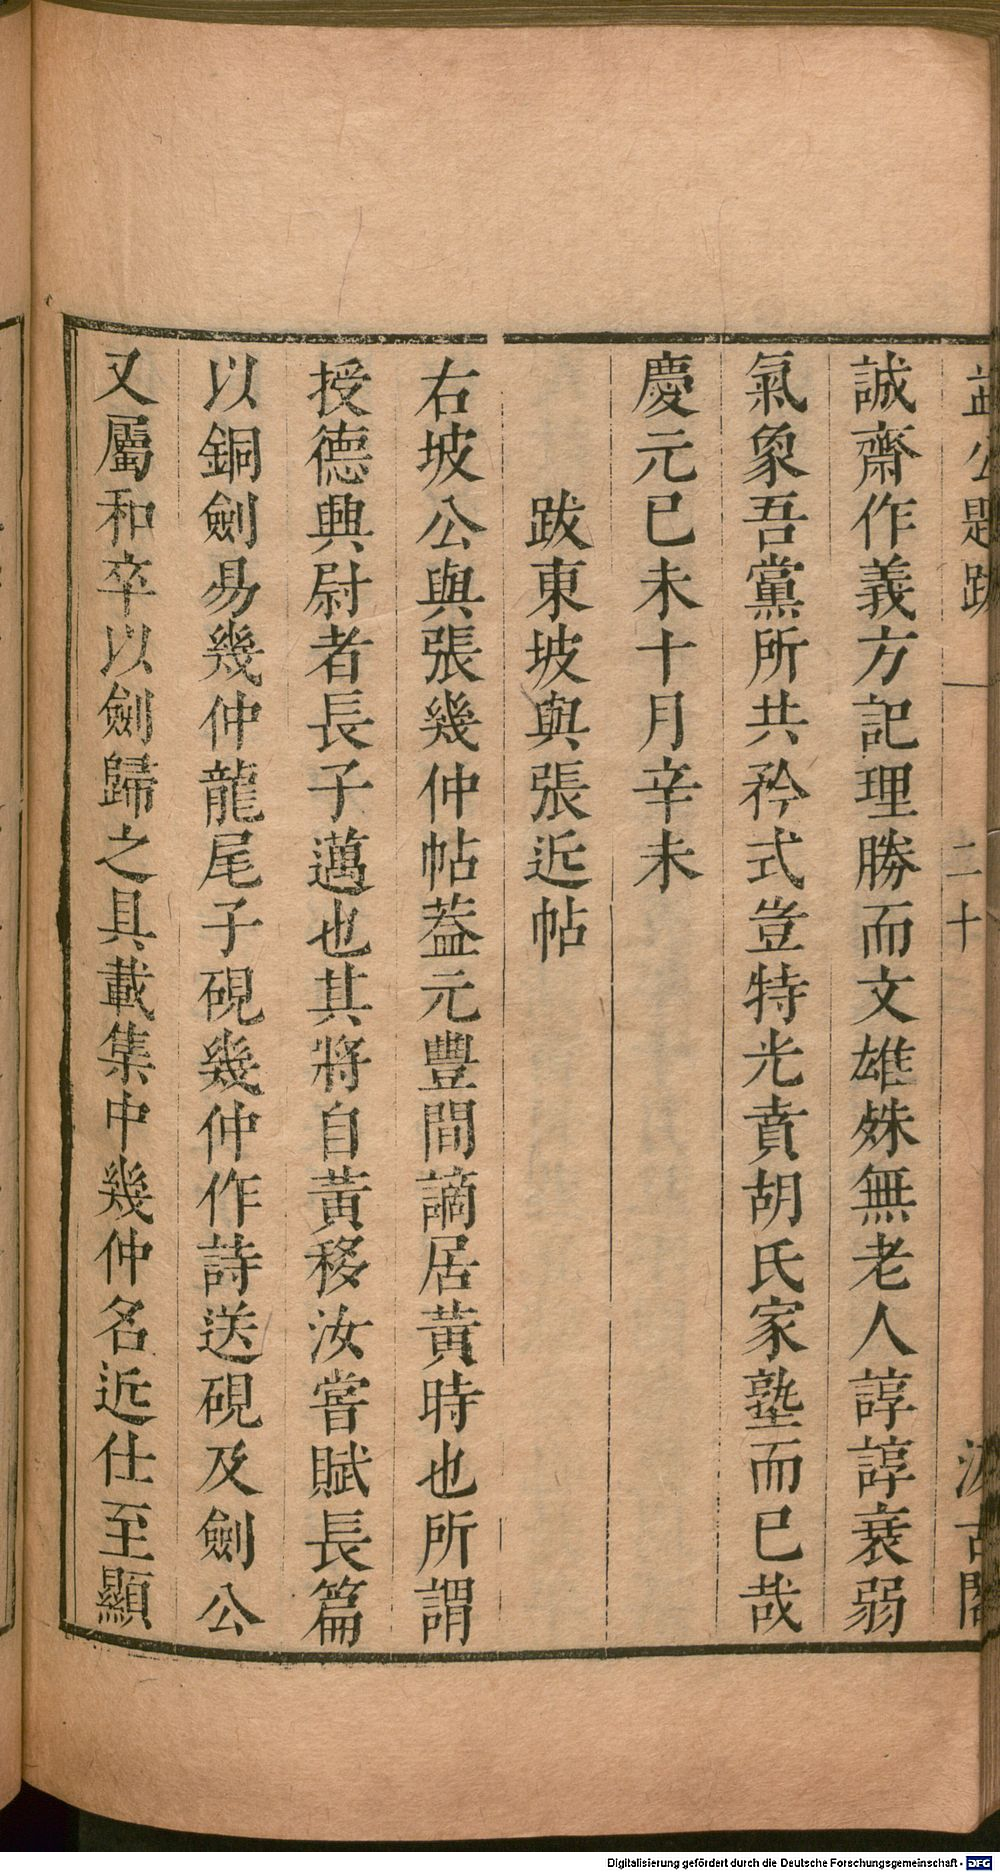 益公題跋 二十 汲古閣
誠齋作義方記理勝而文雄殊無老人諄諄衰弱
氣象吾黨所共矜式豈特光賁胡氏家塾而已哉
慶元已未十月辛未
跋東坡與張近帖
右坡公與張幾仲帖葢元豐間謫居黄時也所謂
授德興尉者長子邁也其將自黄移汝嘗賦長篇
以銅劍易幾仲龍尾子硯幾仲作詩送硯及劍公
又屬和卒以劍歸之具載集中幾仲名近仕至顯
Digitalisierung gefördert durch die Deutsche Forschungsgemeinschaft - DFG